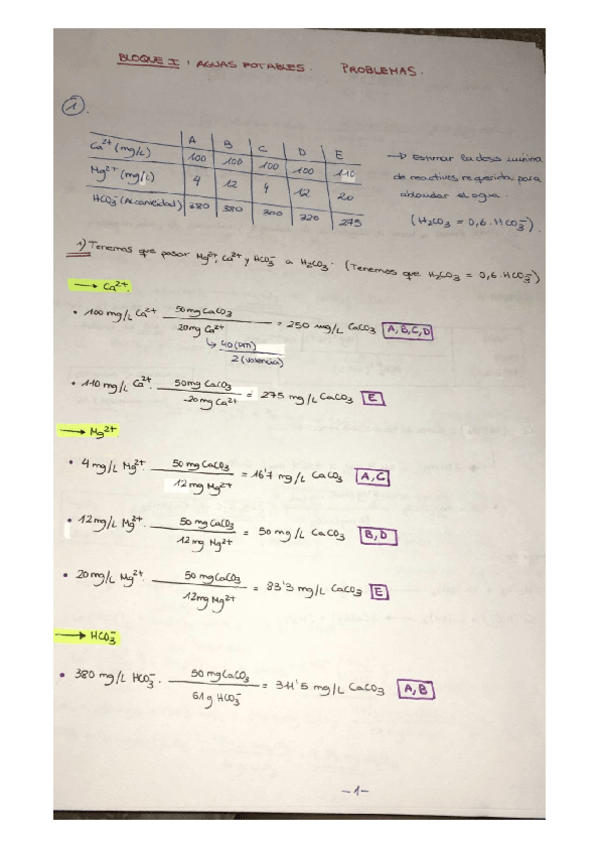 BLOQUE I : AGUAS POTABLES. PROBLEMAS.
1.
A B C D E
Ca²⁺ (mg/L) 100 100 100 100 110
Mg²⁺ (mg/L) 4 12 4 12 20
HCO₃⁻ (Alcalinidad) 380 380 300 320 275
→ Estimar la dosis mínima
de reactivos requerida para
ablandar el agua.
(H₂CO₃ = 0,6·HCO₃⁻).
1) Tenemos que pasar Mg²⁺, Ca²⁺ y HCO₃⁻ a H₂CO₃. (Tenemos que H₂CO₃ = 0,6·HCO₃⁻)
→ Ca²⁺.
• 100 mg/L Ca²⁺ 50mg CaCO₃ / 20mg Ca²⁺ = 250 mg/L CaCO₃ A,B,C,D
↳ 40 (Pm) / 2 (valencia)
• 110 mg/L Ca²⁺. 50mg CaCO₃ / 20mg Ca²⁺ = 275 mg/L CaCO₃ E
→ Mg²⁺
• 4 mg/L Mg²⁺ 50 mg CaCO₃ / 12 mg Mg²⁺ = 16'7 mg/L CaCO₃ A,C
• 12 mg/L Mg²⁺. 50 mg CaCO₃ / 12 mg Mg²⁺ = 50 mg/L CaCO₃ B,D
• 20 mg/L Mg²⁺. 50 mg CaCO₃ / 12 mg Mg²⁺ = 83'3 mg/L CaCO₃ E
→ HCO₃⁻
• 380 mg/L HCO₃⁻. 50 mg CaCO₃ / 61 g HCO₃⁻ = 311'5 mg/L CaCO₃ A,B
-1-